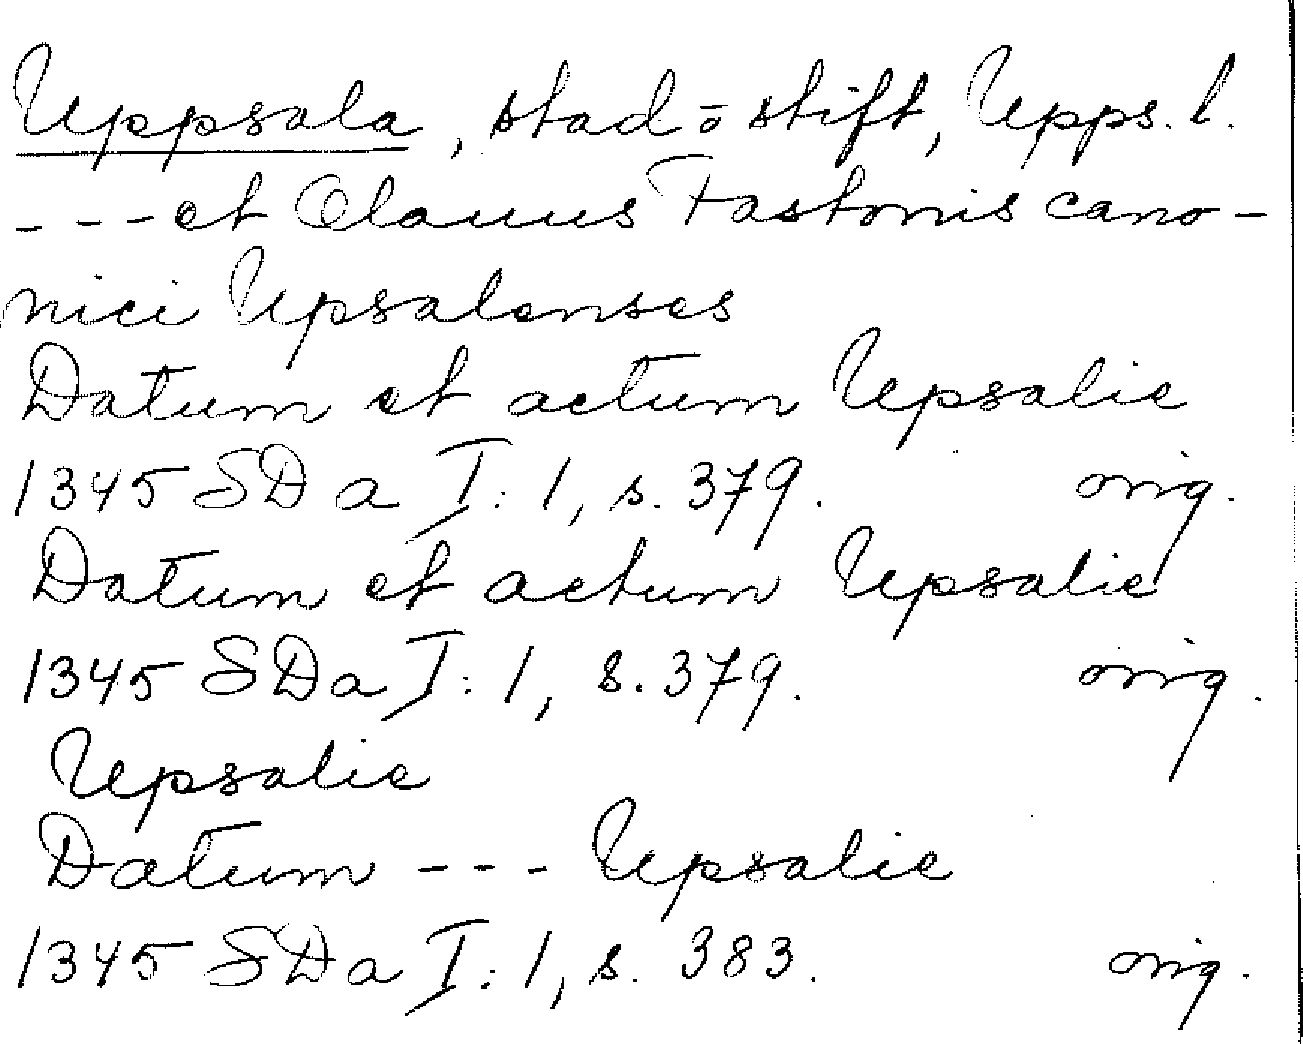 Uppsala, stad o stift, Upps. l.
---et Olauus Fastonis cano-
nici Upsalenses
Datum et actum Upsalie
1345 SDa I:1, s. 379. orig.
Datum et actum Upsalie
1345 SDa I:1, s. 379. orig.
Upsalie
Datum --- Upsalie
1345 SDa I:1, s. 383. orig.